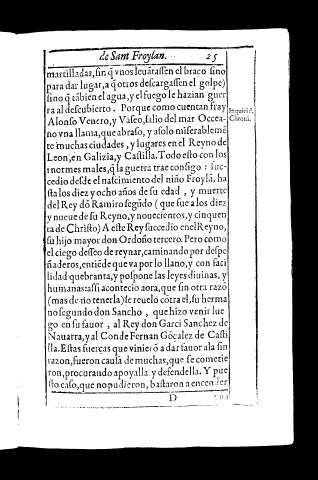 de Sant Froylan. 25
martilladas, sin q̃ vnos leuãtassen el braço sino
para dar lugar, a q̃ otros descargassen el golpe)
sino q̃ tãbien el agua, y el fuego le hazian guer
ra al descubierto. Porque como cuentan fray
Alonso Venero, y Vaseo, salio del mar Occea-
no vna llama, que abraso, y asolo miserablemẽ
te muchas ciudades, y lugares en el Reyno de
Leon, en Galizia, y Castilla. Todo esto con los
inormes males, q̃ la guerra trae consigo: suc-
cedio desde el nascimiento del niño Froylã, ha
sta los diez y ocho años de su edad, y muerte
del Rey dõ Ramiro segũdo (que fue a los diez
y nueue de su Reyno, y nouecientos, y cinquen
ta de Christo) A este Rey succedio en el Reyno,
su hijo mayor don Ordoño tercero. Pero como
el ciego desseo de reynar, caminando por despe
ñaderos, entiẽde que va por lo llano, y con faci
lidad quebranta, y pospone las leyes diuinas, y
humanas: assi acontecio aora, que sin otra razõ
(mas de no tenerla) se reuelo cõtra el, su herma
no segundo don Sancho, que hizo venir lue
go en su fauor, al Rey don Garci Sanchez de
Nauarra, y al Conde Fernan Gõçalez de Casti
lla. Estas fuerças que vinierõ a dar fauor a la sin
razon, fueron causa de muchas, que se cometie
ron, procurando apoyalla, y defendella. Y pue
sto caso, que no pudieron, bastaron a encender
D
Chroni.